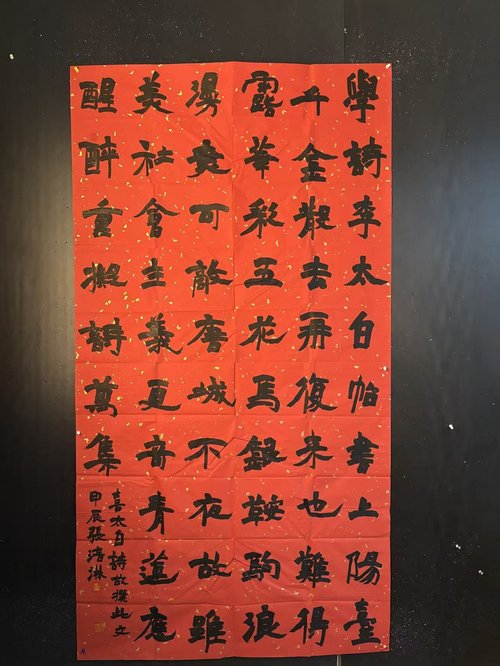 學詩李太白帖書上陽臺
千金散去再復来也難得
露華彩五花馬銀鞍駒浪
漫可敵唐城不夜故雖
美社會主義更音青蓮應
醒醉重擬詩萬集
喜太白詩故撰此文
甲辰張淋